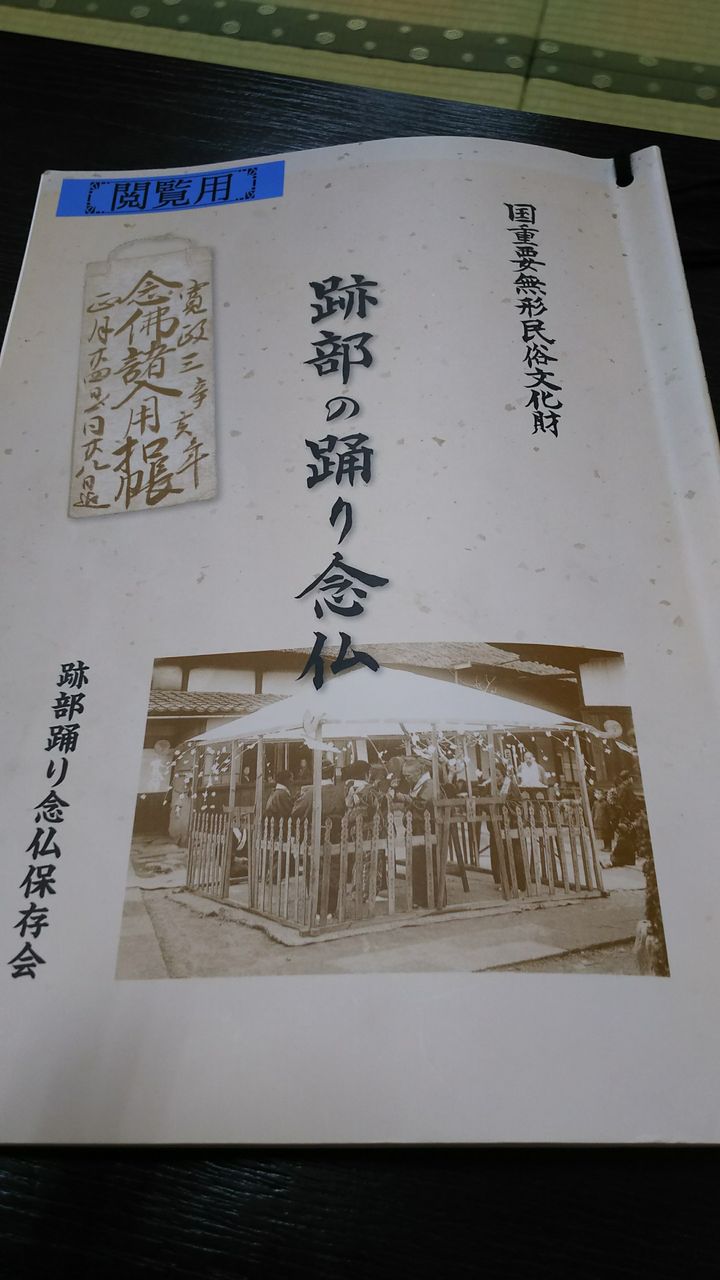 閲覧用
国重要無形民俗文化財
跡部の踊り念仏
寛政三辛亥年
念佛諸入用扣帳
正月廿四日ゟ日廿八日迄
跡部踊り念仏保存会